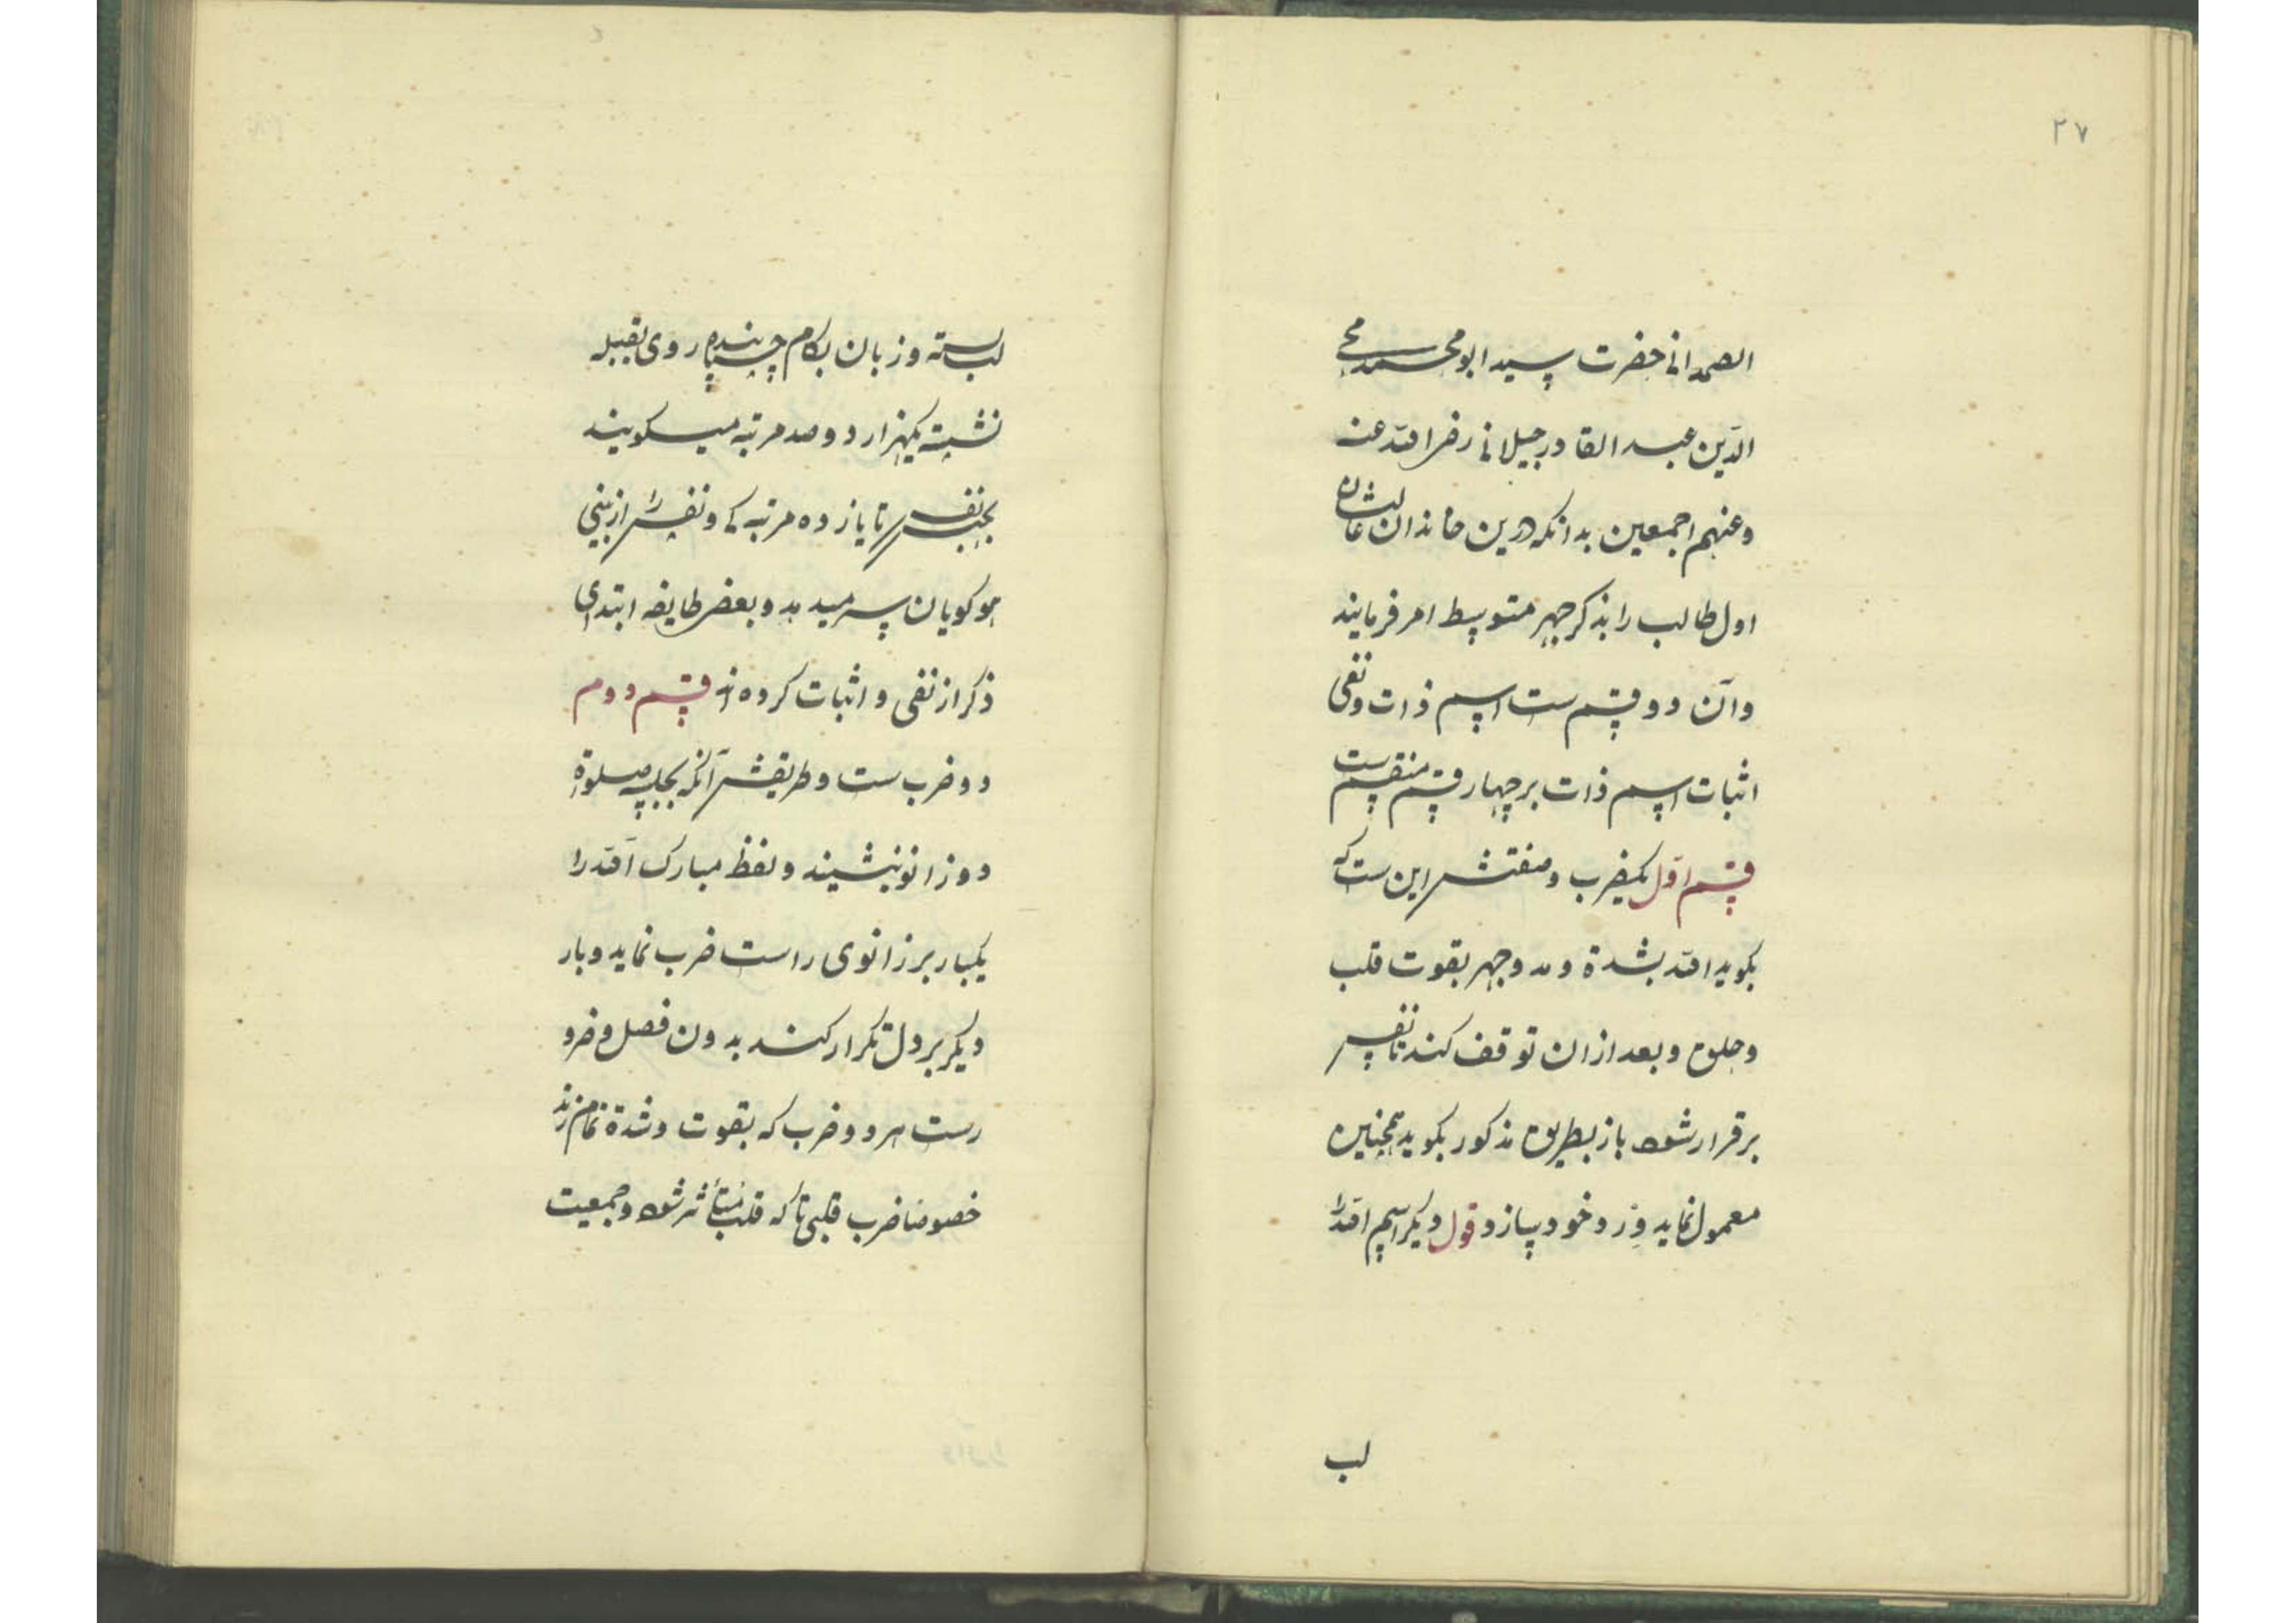 ۲۷
الصمدانی حضرت سید ابو محمد محی
الدّین عبد القادر جیلانی رضی الله عنه
وعنهم اجمعین بدانکه درین خاندان عالیشان
اول طالب را بذکر جهر متوسط امر فرمایند
وآن دو قسم ست اسم ذات ونفی
اثبات اسم ذات بر چهار قسم منقسم ست
قسم اوّل یکضرب وصفتش این ست که
بکوید الله بشدة ومد وجهر بقوت قلب
وحلق وبعد از ان توقف کند تا نفس
برقرار شود باز بطریق مذکور بکوید همچنین
معمول نماید وِرد خود سازد قول دیکر اسم الله را
لب
لب بسته وزبان بکام چسپانیده روی بقبله
نشسته یکهزار دو صد مرتبه میکویند
بحبس نفس تا یازده مرتبه کم ونفس را از بینی
هو کویان سر میدهد وبعضی طایفه ابتدای
ذکر از نفی واثبات کرده اند قسم دوم
دو ضرب ست وطریقش آنکه بجلسه صلوة
دو زانو نشیند ولفظ مبارک الله را
یکبار بر زانوی راست ضرب نماید وبار
دیکر بر دل تکرار کند بدون فصل وضرو
رست هر دو ضرب که بقوت وشدة تمام زند
خصوصا ضرب قلبی تا که قلب متأثر شود وجمعیت